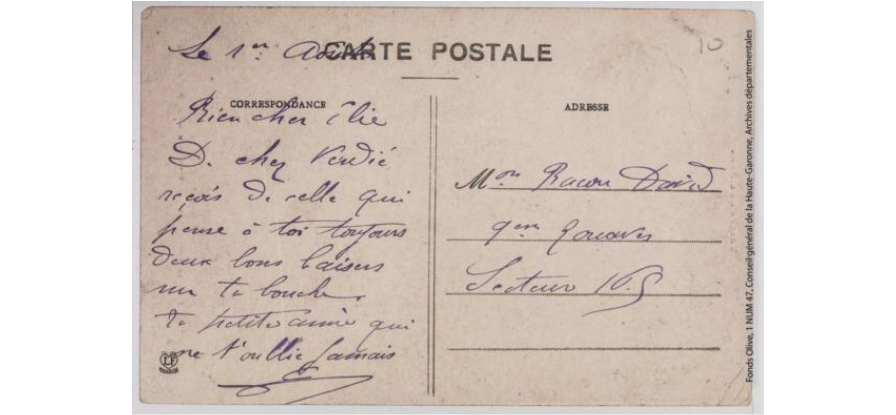 Le 1er Août
CARTE POSTALE
CORRESPONDANCE
Bien cher Élie
D. chez Verdié
reçois de celle qui
pense à toi toujours
deux bons baisers
sur ta bouche.
ta petite amie qui
ne t'oublie jamais
ADRESSE
Mon David
9em
Secteur
Fonds Olive, 1 NUM 47, Conseil général de la Haute-Garonne, Archives départementales
10